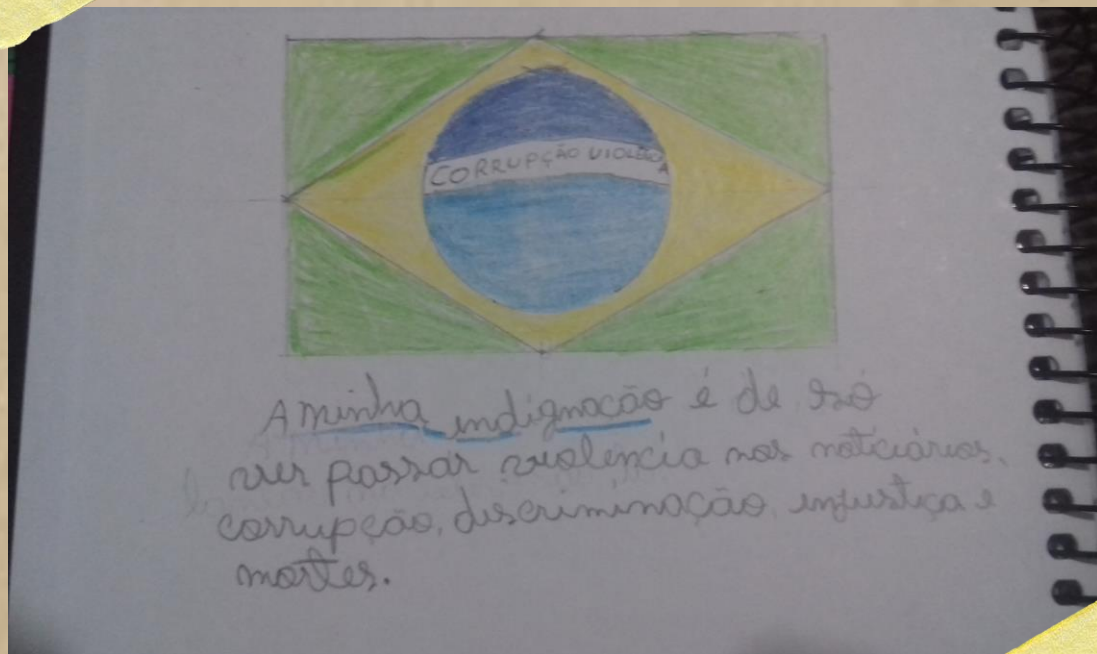 CORRUPÇÃO VIOLÊNCIA
A minha indignação é de só
ver passar violencia nos noticiários,
corrupção, discriminação, injustiça e
mortes.